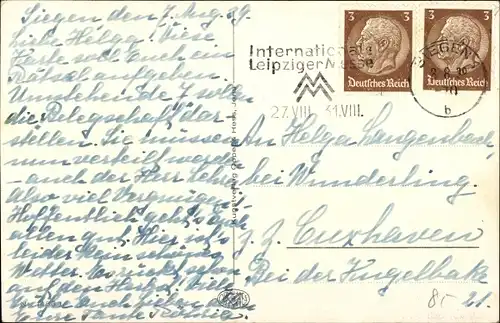 Siegen den 7. Aug. 39.
Liebe Helga! Diese
Karte soll auch ein
Rätsel aufgeben.
Umstehende 7 sollen
die Belegschaft dar-
stellen. Sie müssen
nun verteilt werden
- auch der Herr Lehrer
Also viel Vergnügen!
Hoffentlich geht's euch
allen gut. Hier ist
leider kein schönes
Wetter.
auf den Herbst. Viele
Grüße Euch allen
Eure Tante
3
3
Deutsches Reich
Deutsches Reich
Internationale
Leipziger Messe
27.VIII. 31.VIII.
SIEGEN
b
An Helga Langenbach
bei Wunderling.
z. Z. Cuxhaven
Bei der Kugelbake